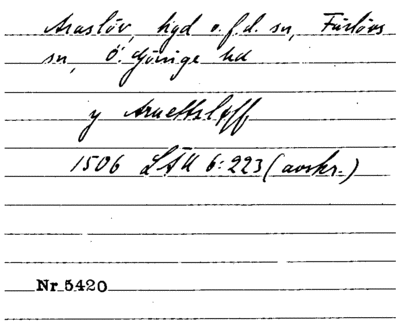 Araslöv, hgd o. f.d. sn, Färlövs
sn, Ö. Göinge hd
y Aruettsløff
1506 LÄU 6:223 (avskr.)
Nr 5420